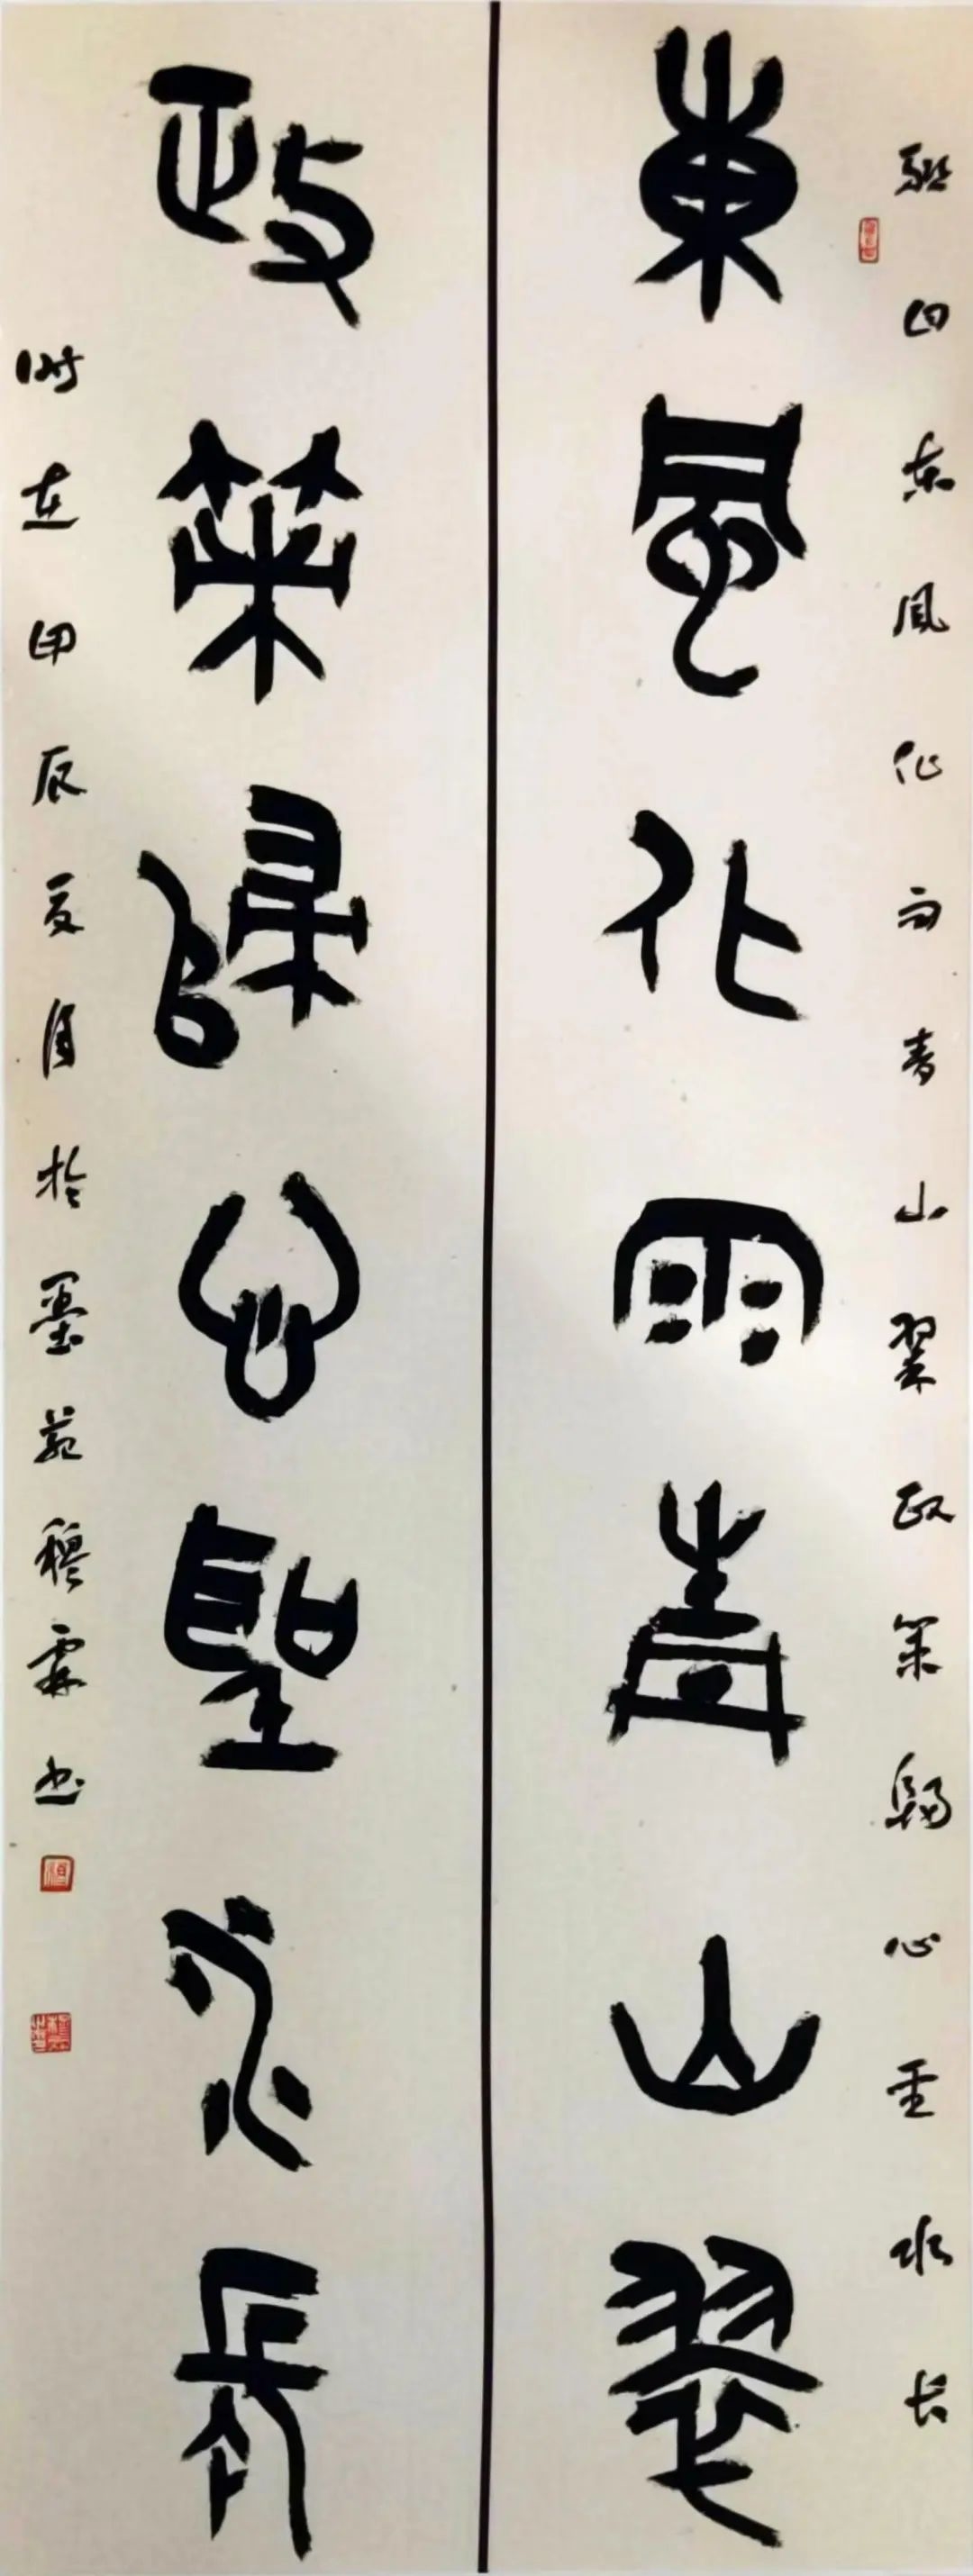 聯曰東風化雨青山翠政策歸心聖水長
東風化雨青山翠
政策歸心聖水長
時在甲辰夏月於墨苑穆霖书